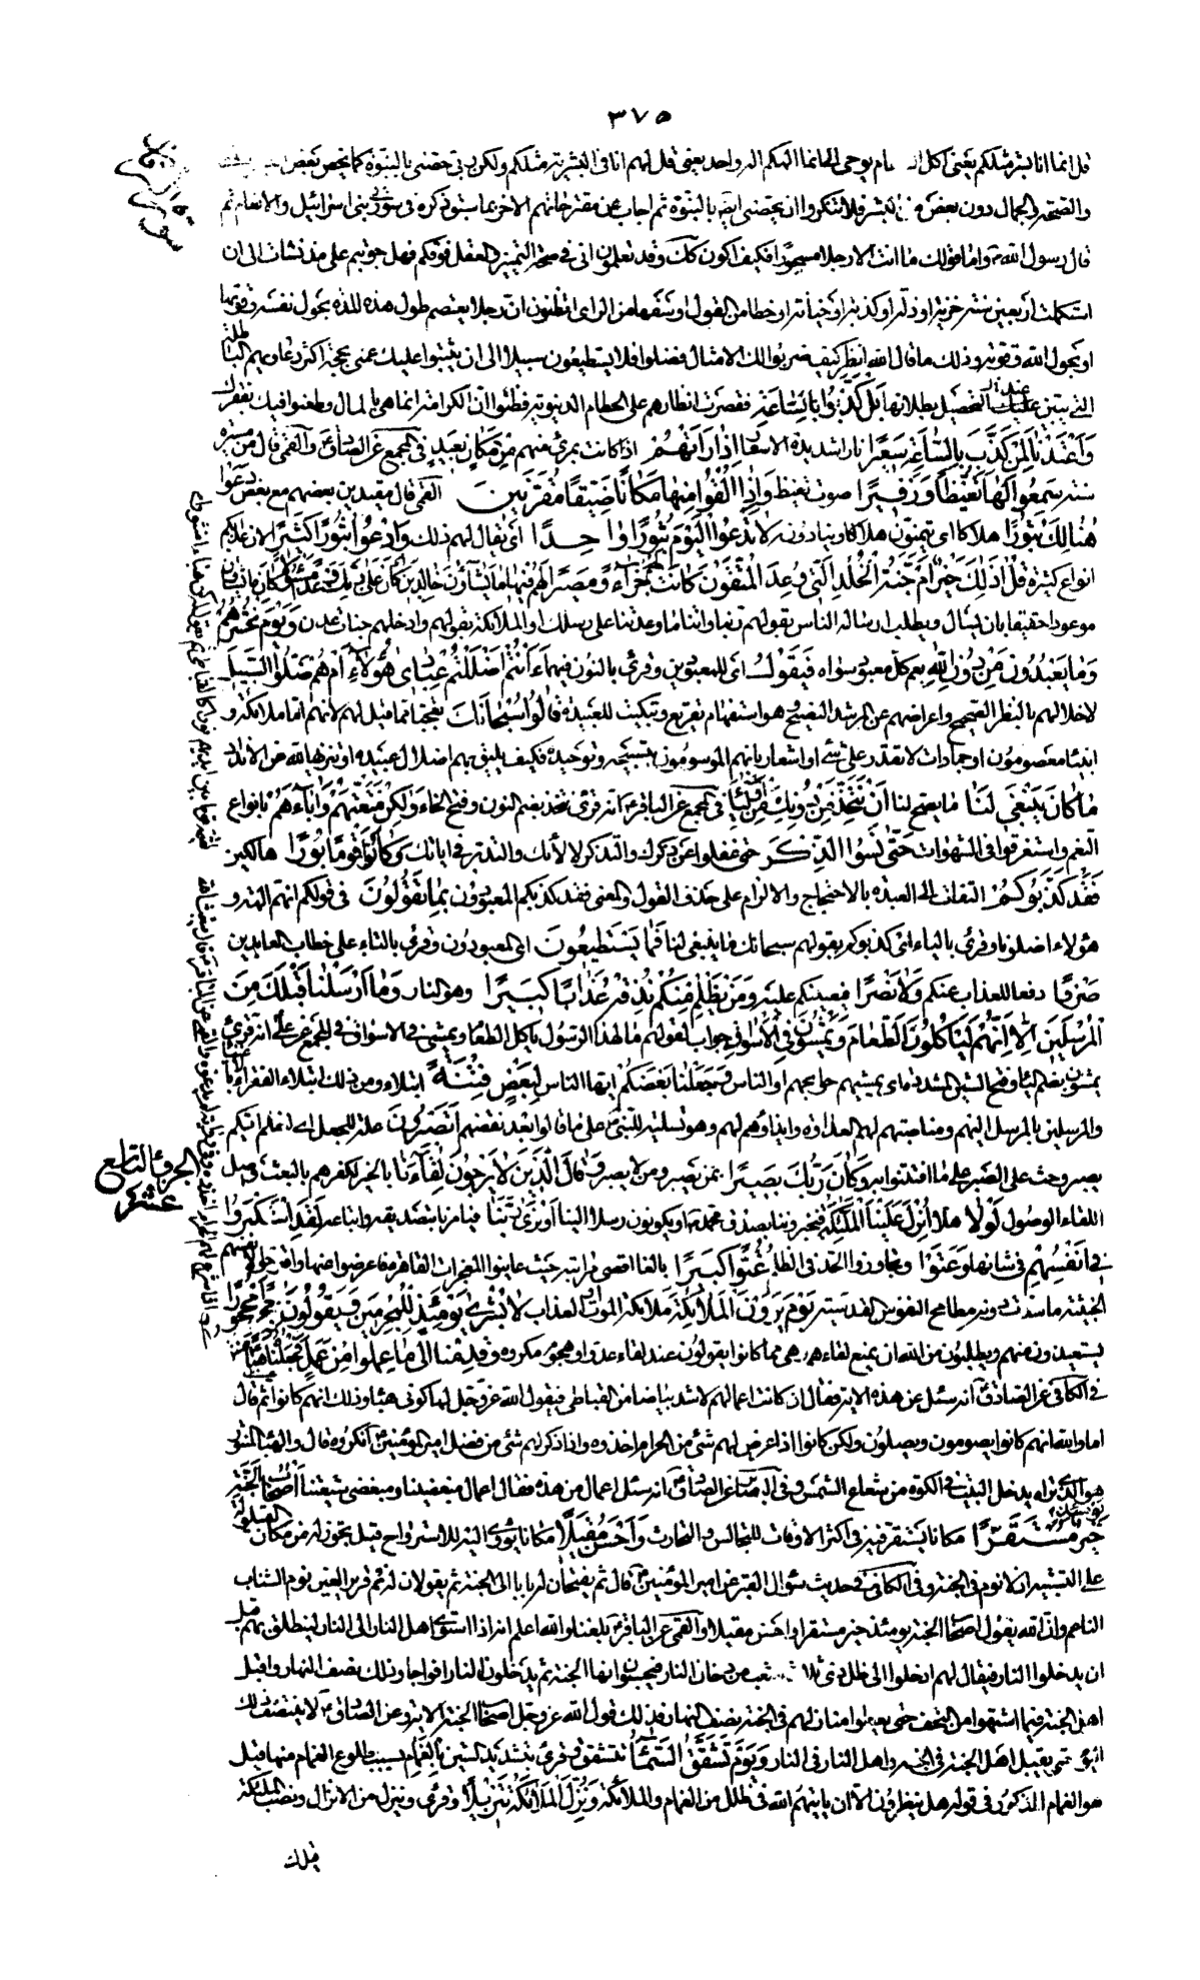 ٣٧٥
قل انما انا بشر مثلكم يعني اكل الطعام يوحى الي انما الهكم اله واحد يعني قل لهم انا في البشرية مثلكم ولكن ربي خصني بالنبوة كما يخص بعض
والصحة والجمال دون بعض من البشر فلا تنكروا ان يخصني ايضا بالنبوة ثم اجاب عن مقترحاتهم الاخر بما سبق ذكره في سورتي بني اسرائيل والانعام ثم
قال رسول الله ص واما قولك ما انت الا رجلا مسحورا فكيف اكون كذلك وقد تعلمون اني في صحة التميز والعقل فوقكم فهل جربتم علي مذ نشأت الى ان
استكملت اربعين سنة خزية او ذلة او كذبة او خيانة او خطأ من القول او سفها من الراي اتظنون ان رجلا يعتصم طول هذه المدة بحول نفسه وقوتها
او بحول الله وقوته وذلك ما قال الله انظر كيف ضربوا لك الامثال فضلوا فلا يستطيعون سبيلا الى ان يثبتوا عليك عمى بحجة اكثر دعاويهم الباطلة
التي يبين عليك التحصيل بطلانها بل كذبوا بالساعة فقصرت انظارهم على الحطام الدنيوية فظنوا ان الكرامة انما هي بالمال وطعنوا فيك بفقرك
وَاَعْتَدْنَا لِمَنْ كَذَّبَ بِالسَّاعَةِ سَعِيرًا نارا شديدة الاسعار اِذَا رَاَتْهُمْ اذا كانت بمرئ منهم مِنْ مَكَانٍ بَعِيدٍ في المجمع عن الصادق ع والقمي قال من مسيرة
سنة سَمِعُوا لَهَا تَغَيُّظًا وَزَفِيرًا صوت تغيظ وَاِذَا اُلْقُوا مِنْهَا مَكَانًا ضَيِّقًا مُقَرَّنِينَ القمي قال مقيدين بعضهم مع بعض دَعَوْا
هُنَالِكَ ثُبُورًا هلاكا اي يتمنون هلاكا وينادونه لَا تَدْعُوا الْيَوْمَ ثُبُورًا وَاحِدًا اي يقال لهم ذلك وَادْعُوا ثُبُورًا كَثِيرًا لان عذابكم
انواع كثيرة قُلْ اَذٰلِكَ خَيْرٌ اَمْ جَنَّةُ الْخُلْدِ الَّتِي وُعِدَ الْمُتَّقُونَ كَانَتْ لَهُمْ جَزَاءً وَمَصِيرًا لَهُمْ فِيهَا مَا يَشَاؤُنَ خَالِدِينَ كَانَ عَلٰى رَبِّكَ وَعْدًا مَسْئُولًا كان ما يشاؤن
موعودا حقيقا بان يسال ويطلب او ساله الناس بقولهم ربنا واتنا ما وعدتنا على رسلك او الملائكة بقولهم وادخلهم جنات عدن وَيَوْمَ نَحْشُرُهُمْ
وَمَا يَعْبُدُونَ مِنْ دُونِ اللّٰهِ يعم كل معبود سواه فَيَقُولُ اي للمعبودين وقرئ بالنون فيهما ءَاَنْتُمْ اَضْلَلْتُمْ عِبَادِي هٰؤُلَاءِ اَمْ هُمْ ضَلُّوا السَّبِيلَ
لاخلالهم بالنظر الصحيح واعراضهم عن المرشد النصيح وهو استفهام تقريع وتبكيت للعبدة قَالُوا سُبْحَانَكَ تعجبا مما قيل لهم لانهم اما ملائكة و
انبياء معصومون او جمادات لا تقدر على شئ او اشعارا بانهم الموسومون بتسبيحه وتوحيده فكيف يليق بهم اضلال عبيده او تنزيها لله من الانداد
مَا كَانَ يَنْبَغِي لَنَا ما يصح لنا اَنْ نَتَّخِذَ مِنْ دُونِكَ مِنْ اَوْلِيَاءَ في المجمع عن الباقر ع انه قرئ نتخذ بضم النون وفتح الخاء وَلٰكِنْ مَتَّعْتَهُمْ وَاٰبَاءَهُمْ بانواع
النعم واستغرقوا في الشهوات حَتّٰى نَسُوا الذِّكْرَ حتى غفلوا عن ذكرك والتذكر لالائك والتدبر في اياتك وَكَانُوا قَوْمًا بُورًا هالكين
فَقَدْ كَذَّبُوكُمْ التفات الى العبدة بالاحتجاج والالزام على حذف القول والمعنى فقد كذبكم المعبودون بِمَا تَقُولُونَ في قولكم انهم الهة و
هؤلاء اضلونا وقرئ بالياء اي كذبوكم بقولهم سبحانك ما ينبغي لنا فَمَا يَسْتَطِيعُونَ اي المعبودون وقرئ بالتاء على خطاب العابدين
صَرْفًا دفعا للعذاب عنكم وَلَا نَصْرًا فيعينكم عليه وَمَنْ يَظْلِمْ مِنْكُمْ نُذِقْهُ عَذَابًا كَبِيرًا وهو النار وَمَا اَرْسَلْنَا قَبْلَكَ مِنَ
الْمُرْسَلِينَ اِلَّا اِنَّهُمْ لَيَاْكُلُونَ الطَّعَامَ وَيَمْشُونَ فِي الْاَسْوَاقِ جواب لقولهم ما لهذا الرسول ياكل الطعام ويمشي في الاسواق في المجمع عن علي ع انه قرئ
يمشون بضم الياء وفتح الشين المشددة اي يمشيهم حوايجهم او الناس وَجَعَلْنَا بَعْضَكُمْ ايها الناس لِبَعْضٍ فِتْنَةً ابتلاء ومن ذلك ابتلاء الفقراء بالاغنياء
والمرسلين بالمرسل اليهم ومناصبتهم لهم العداوة وايذاؤهم لهم وهو تسلية للنبي ص على ما قالوا بعد نقضهم اَتَصْبِرُونَ علة للجعل اي لنعلم ايكم
يصبر وحث على الصبر على ما افتتنوا به وَكَانَ رَبُّكَ بَصِيرًا بمن يصبر ومن لا يصبر وَقَالَ الَّذِينَ لَا يَرْجُونَ لِقَاءَنَا بالخير لكفرهم بالبعث وقيل
اللقاء الوصول لَوْلَا هلا اُنْزِلَ عَلَيْنَا الْمَلٰئِكَةُ فتخبرونا بصدق محمد ص او يكونون رسلا الينا اَوْ نَرٰى رَبَّنَا فيامرنا بتصديقه واتباعه لَقَدِ اسْتَكْبَرُوا
فِي اَنْفُسِهِمْ في شانها وَعَتَوْا وتجاوزوا الحد في الظلم عُتُوًّا كَبِيرًا بالغا اقصى مراتبه حيث عاينوا المعجزات القاهرة فاعرضوا عنها واقترحوا لانفسهم
الخبيثة ما سدت دونه مطامح النفوس القدسية يَوْمَ يَرَوْنَ الْمَلَائِكَةَ ملائكة الموت او العذاب لَا بُشْرٰى يَوْمَئِذٍ لِلْمُجْرِمِينَ وَيَقُولُونَ حِجْرًا مَحْجُورًا
يستعيذون منهم ويطلبون من الله ان يمنع لقاءهم وهي مما كانوا يقولون عند لقاء عدو او هجوم مكروه وَقَدِمْنَا اِلٰى مَا عَمِلُوا مِنْ عَمَلٍ فَجَعَلْنَاهُ هَبَاءً مَنْثُورًا
في الكافي عن الصادق ع انه سئل عن هذه الاية فقال ان كانت اعمالهم لاشد بياضا من القباطي فيقول الله عز وجل لها كوني هباء وذلك انهم كانوا ثم قال
اما والله انهم كانوا يصومون ويصلون ولكن كانوا اذا عرض لهم شئ من الحرام اخذوه واذا ذكر لهم شئ من فضل امير المؤمنين ع انكروه قال والهباء المنثور
هو الذي تراه يدخل البيت في الكوة من شعاع الشمس وفي البصائر عن الصادق ع انه سئل اعمال من هذه فقال اعمال مبغضينا ومبغضي شيعتنا اَصْحَابُ الْجَنَّةِ يَوْمَئِذٍ
خَيْرٌ مُسْتَقَرًّا مكانا يستقر فيه في اكثر الاوقات للتجالس والتحادث وَاَحْسَنُ مَقِيلًا مكانا يؤوى اليه للاسترواح قيل تجوز له من مكان القيلولة
على التشبيه اذ لا نوم في الجنة وفي الكافي في حديث سؤال القبر عن امير المؤمنين ع قال ثم يفتحان له بابا الى الجنة ثم يقولان له نم قرير العين نوم الشاب
الناعم فان الله يقول اصحاب الجنة يومئذ خير مستقرا واحسن مقيلا والقمي عن الباقر ع بلغنا والله اعلم انه اذا استوى اهل النار الى النار لينطلق بهم قبل
ان يدخلوا النار فيقال لهم ادخلوا الى ظل ذي ثلاث شعب من دخان النار فيحسبون انها الجنة ثم يدخلون النار افواجا وذلك نصف النهار واقبل
اهل الجنة فيما اشتهوا من التحف حتى يعطوا منازلهم في الجنة نصف النهار فذلك قول الله عز وجل اصحاب الجنة الاية وعن الصادق ع لا ينتصف ذلك
اليوم حتى يقيل اهل الجنة في الجنة واهل النار في النار وَيَوْمَ تَشَقَّقُ السَّمَاءُ تتشقق وقرئ بتشديد الشين بِالْغَمَامِ بسبب طلوع الغمام منها قيل
هو الغمام المذكور في قوله هل ينظرون الا ان ياتيهم الله في ظلل من الغمام والملائكة وَنُزِّلَ الْمَلَائِكَةُ تَنْزِيلًا وقرئ وننزل من الانزال ونصب الملائكة
الجزء التاسع
عشر
فلك